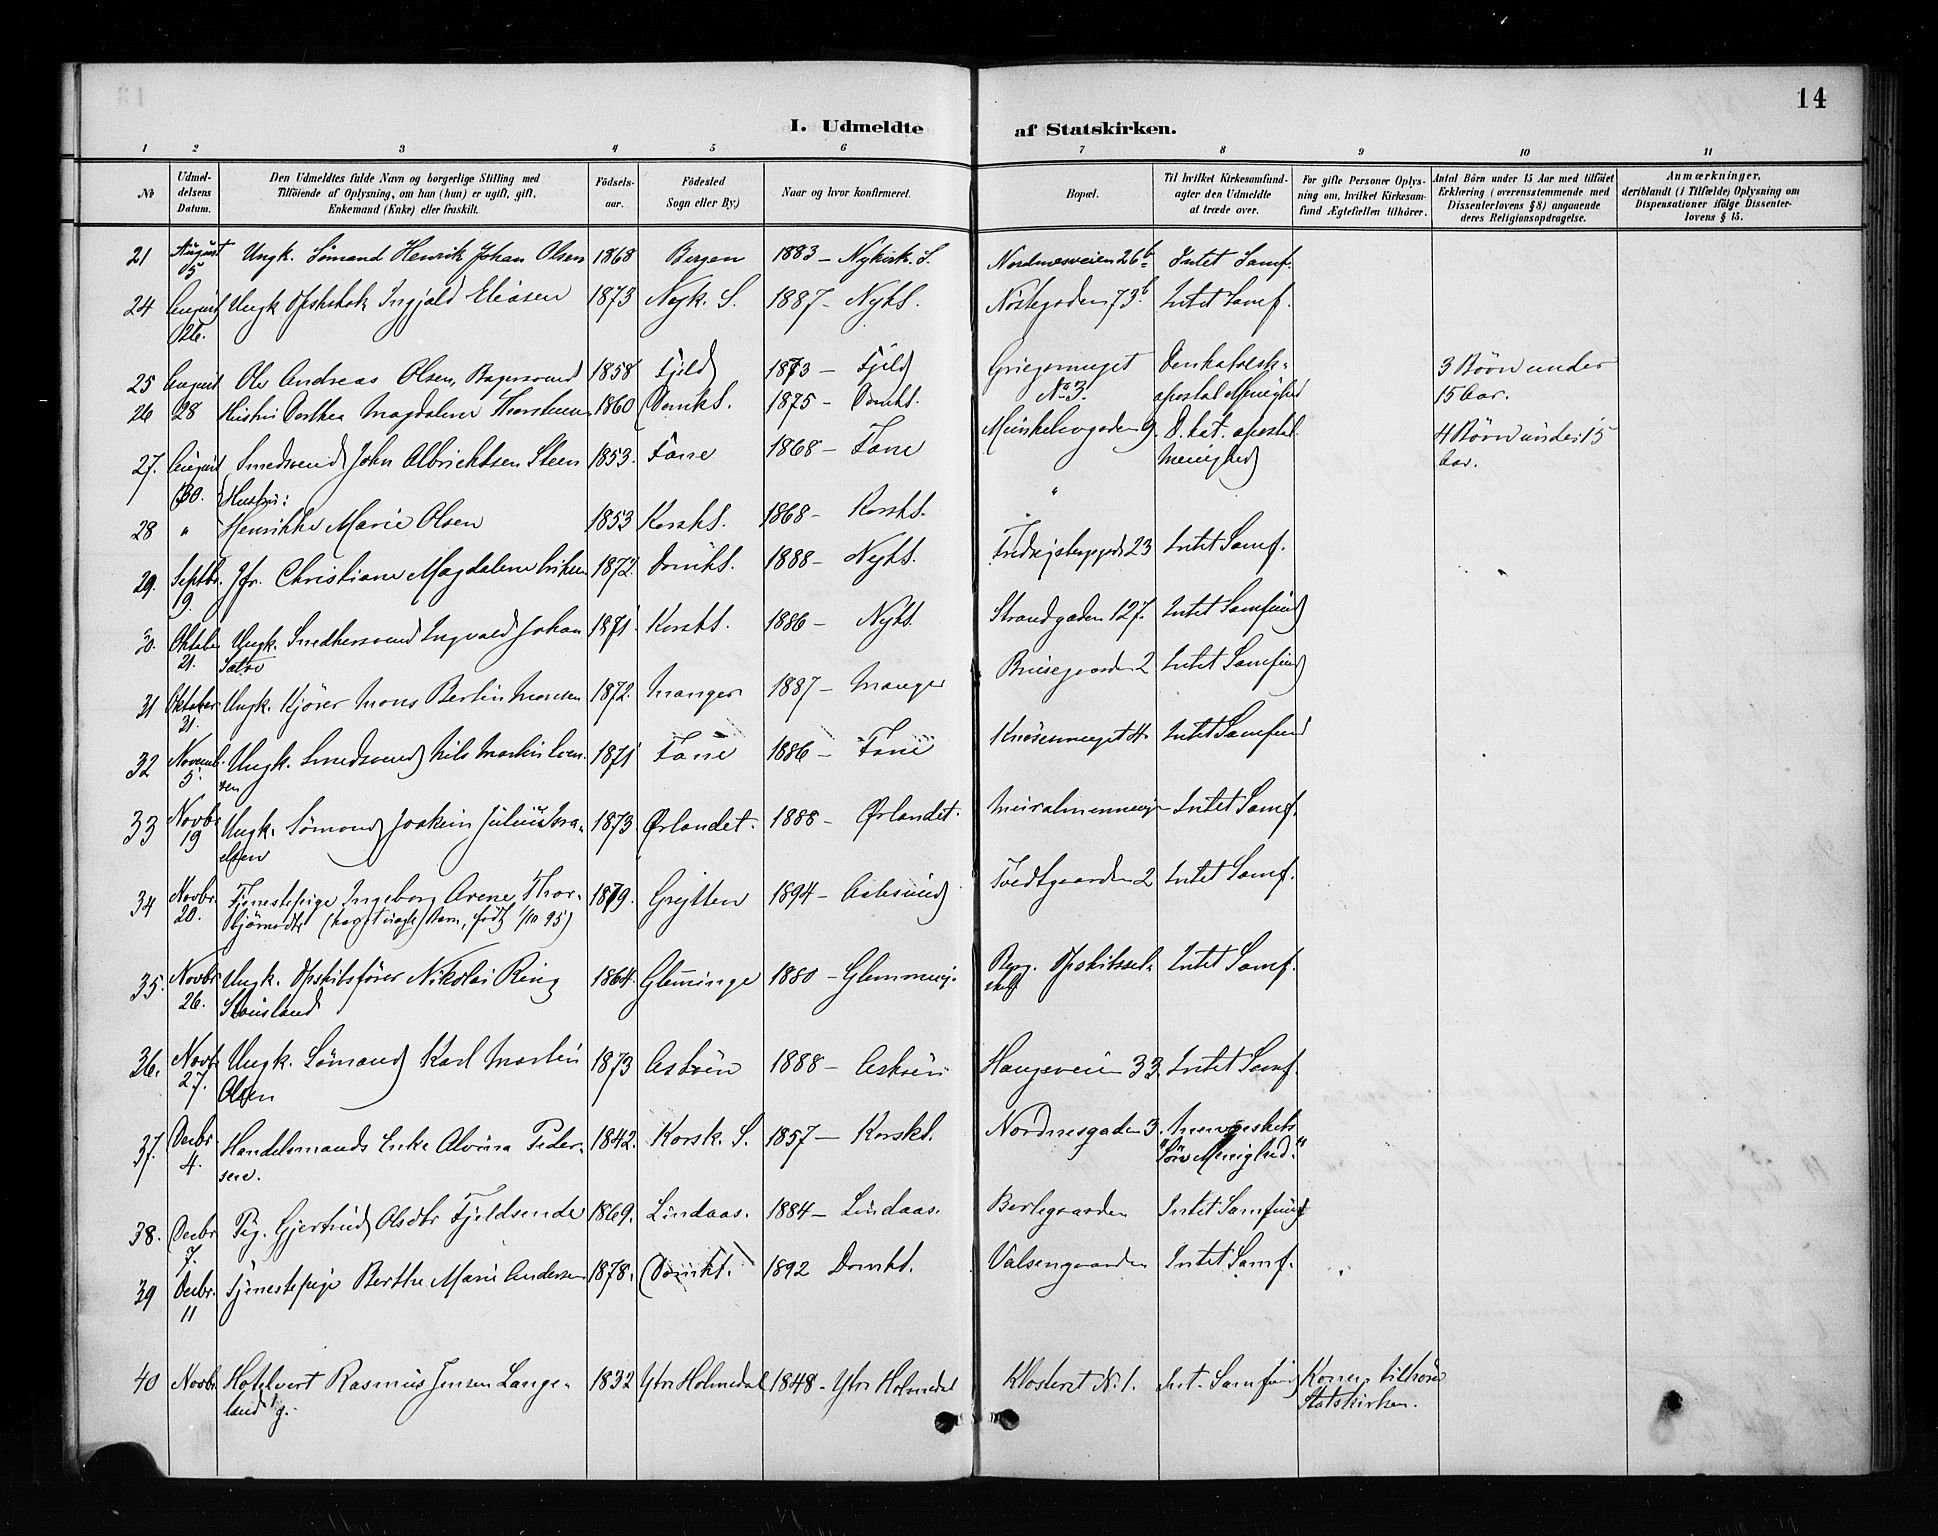 14
I. Udmeldte af Statskirken.
1 2 3 4 5 6 7 8 9 10 11
No
Udmeldelsens Datum.
Den Udmeldtes fulde Navn og borgerlige Stilling med
Tilföiende af Oplysning, om han (hun) er ugift, gift,
Enkemand (Enke) eller fraskilt.
Födsels-
aar.
Födested
Sogn eller By.)
Naar og hvor konfirmeret.
Bopæl.
Til hvilket Kirkesamfund-
agter den Udmeldte
at træde over.
For gifte Personer Oplys-
ning om, hvilket Kirkesam-
fund Ægtefællen tilhörer.
Antal Börn under 15 Aar med tilföiet
Erklæring (overensstemmende med
Dissenterlovens §8) angaaende
deres Religionsopdragelse.
Anmærkninger,
deriblandt (i Tilfælde) Oplysning om
Dispensationer ifölge Dissenter-
lovens § 15.
21 August Ungk. Sömand Henrik Johan Olsen 1868 Bergen 1883 – Nykirk. S. Nordnesveien 26b Intet Samf.
15
24 August Ungk. Ingjald Eliasen 1873 Nyk. S. 1887 – NykS. Nöstegaden 73b Intet Samf.
26.
25 August Ole Andreas Olsen, Bagersvend 1858 Fjeld 1873 – Fjeld Griegsmuget Den katolsk- 3 Börn under
26 28 Hustru Dorthea Magdalene Thorstensen 1860 Domks. 1875 – Domks. No 3. apostol Menighed 15 Aar.
27. August Smedsvend John Albrichtsen Steen 1853. Fane 1868 – Fane Munkelivgaden 9. D. kat. apostol. 4 Börn under 15
30. Hustru: Menighed Aar.
28 " Henrikke Marie Olsen 1853 KorskS. 1868 – KorskS. "
29. Septbr. Jfr. Christiane Magdalene Eriksen 1872. Domks. 1888 – NykS. 23 Intet Samf.
19.
30. Oktober Ungk. Ingvald Johan 1871. KorskS. 1886 – NykS. Strandgaden 127. Intet Samfund
21. Sætre
31 Oktober Ungk. Kjörer Mons Bertin Monsen 1872. Manger 1887 – Manger 2 Intet Samfund
31.
32 Novemb. Ungk. Smedsvend Nils Martin Iver- 1871 Fane 1886 – Fane Knösesmuget 4. Intet Samfund
5. sen
33 Novbr. Ungk. Sömand Joakim Julius Isra- 1873 Ørlandet. 1888 – Ørlandet. Intet Samf.
19 elsen
34 Novbr. Tjenestepige Ingeborg Arene Thor- 1879. Grytten 1894 – Aalesund Tvedtgaarden 2 Intet Samf.
20. björnsdtr
35. Novbr. Ungk. Opskibsförer Nikolai Ring 1864. Glemminge 1880 – Glemming. Berg. Opskibssel- Intet Samf.
26. Stousland skab
36. Novbr. Ungk. Sömand Karl Martin 1873 Asköen 1888 – Asköen Haugeveien 33. Intet Samf.
27. Olsen
37. Decbr. Handelsmands Enke Alvina Peder- 1842. Korsk. S. 1857 – Korsks. Nordnesgaden 3. Menneskets
4. sen. Söns Menighed."
38. Decbr. Pig. Gjertrud Olsdtr Fjeldsende 1869. Lindaas. 1884 – Lindaas. Intet Samfund
7.
39 Decbr. Tjenestepige Berthe Marie Andersen 1878. Domks. 1892 Domks. Valsengaarden Intet Samf.
11
40 Novbr. Hotelvert Rasmus Jensen Lange- 1832 Ytre Holmedal 1848 – Ytre Holmedal Klosteret N. 1. Int. Samfund Konen tilhörer
land g. Statskirken.